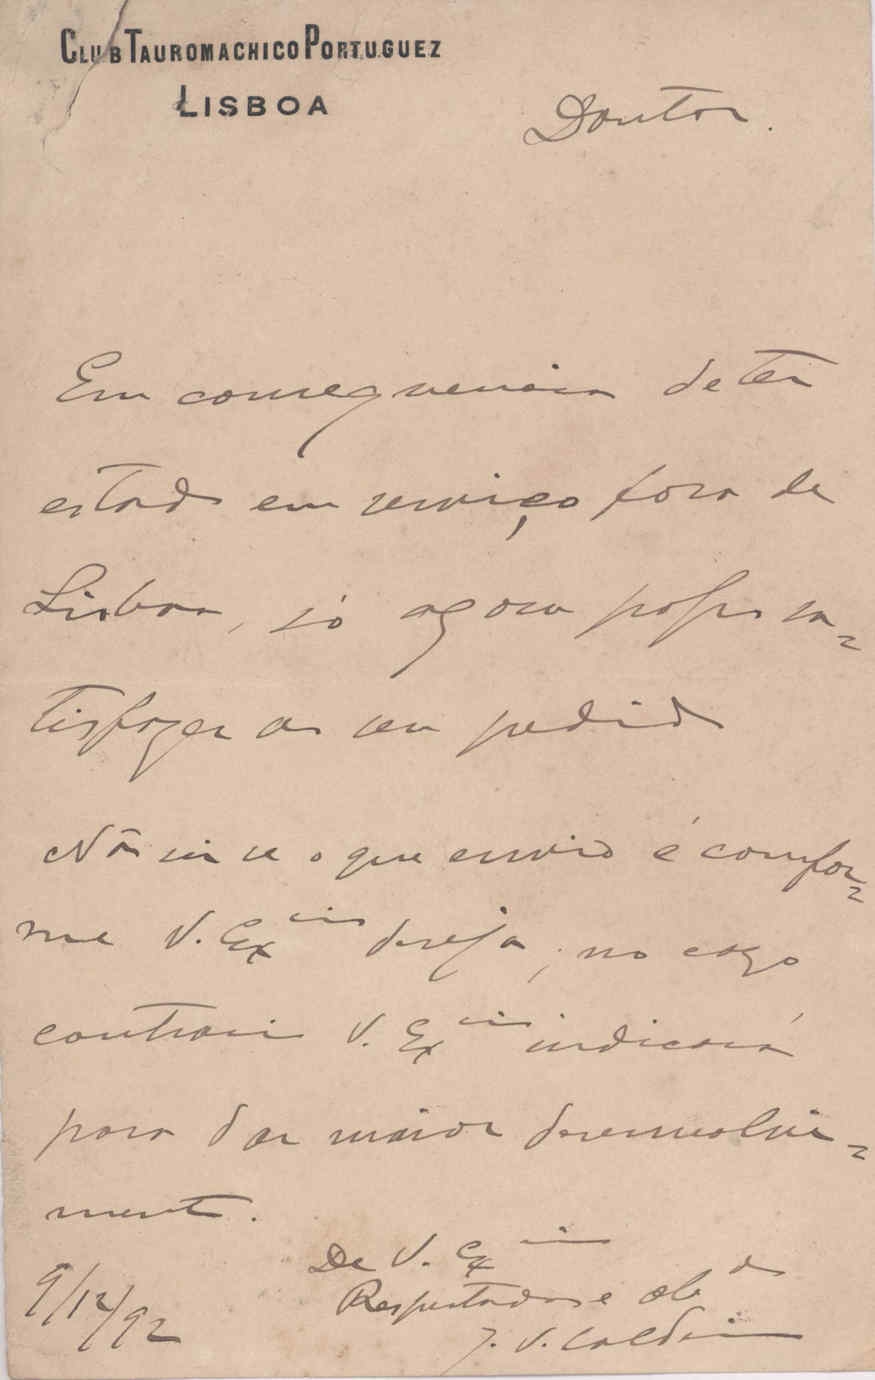 CLUB TAUROMACHICO PORTUGUEZ
LISBOA
Doutor.
Em consequencia de ter
estado em serviço fora de
Lisboa, só agora posso sa=
tisfazer ao seu pedido
Não sei se o que envio é confor=
me V. Excia deseja, no cazo
contrario V. Excia indicará
para dar maior desenvolvi=
mento.
De V. Excia
Respeitador e obdo
9/12/92
J. V.